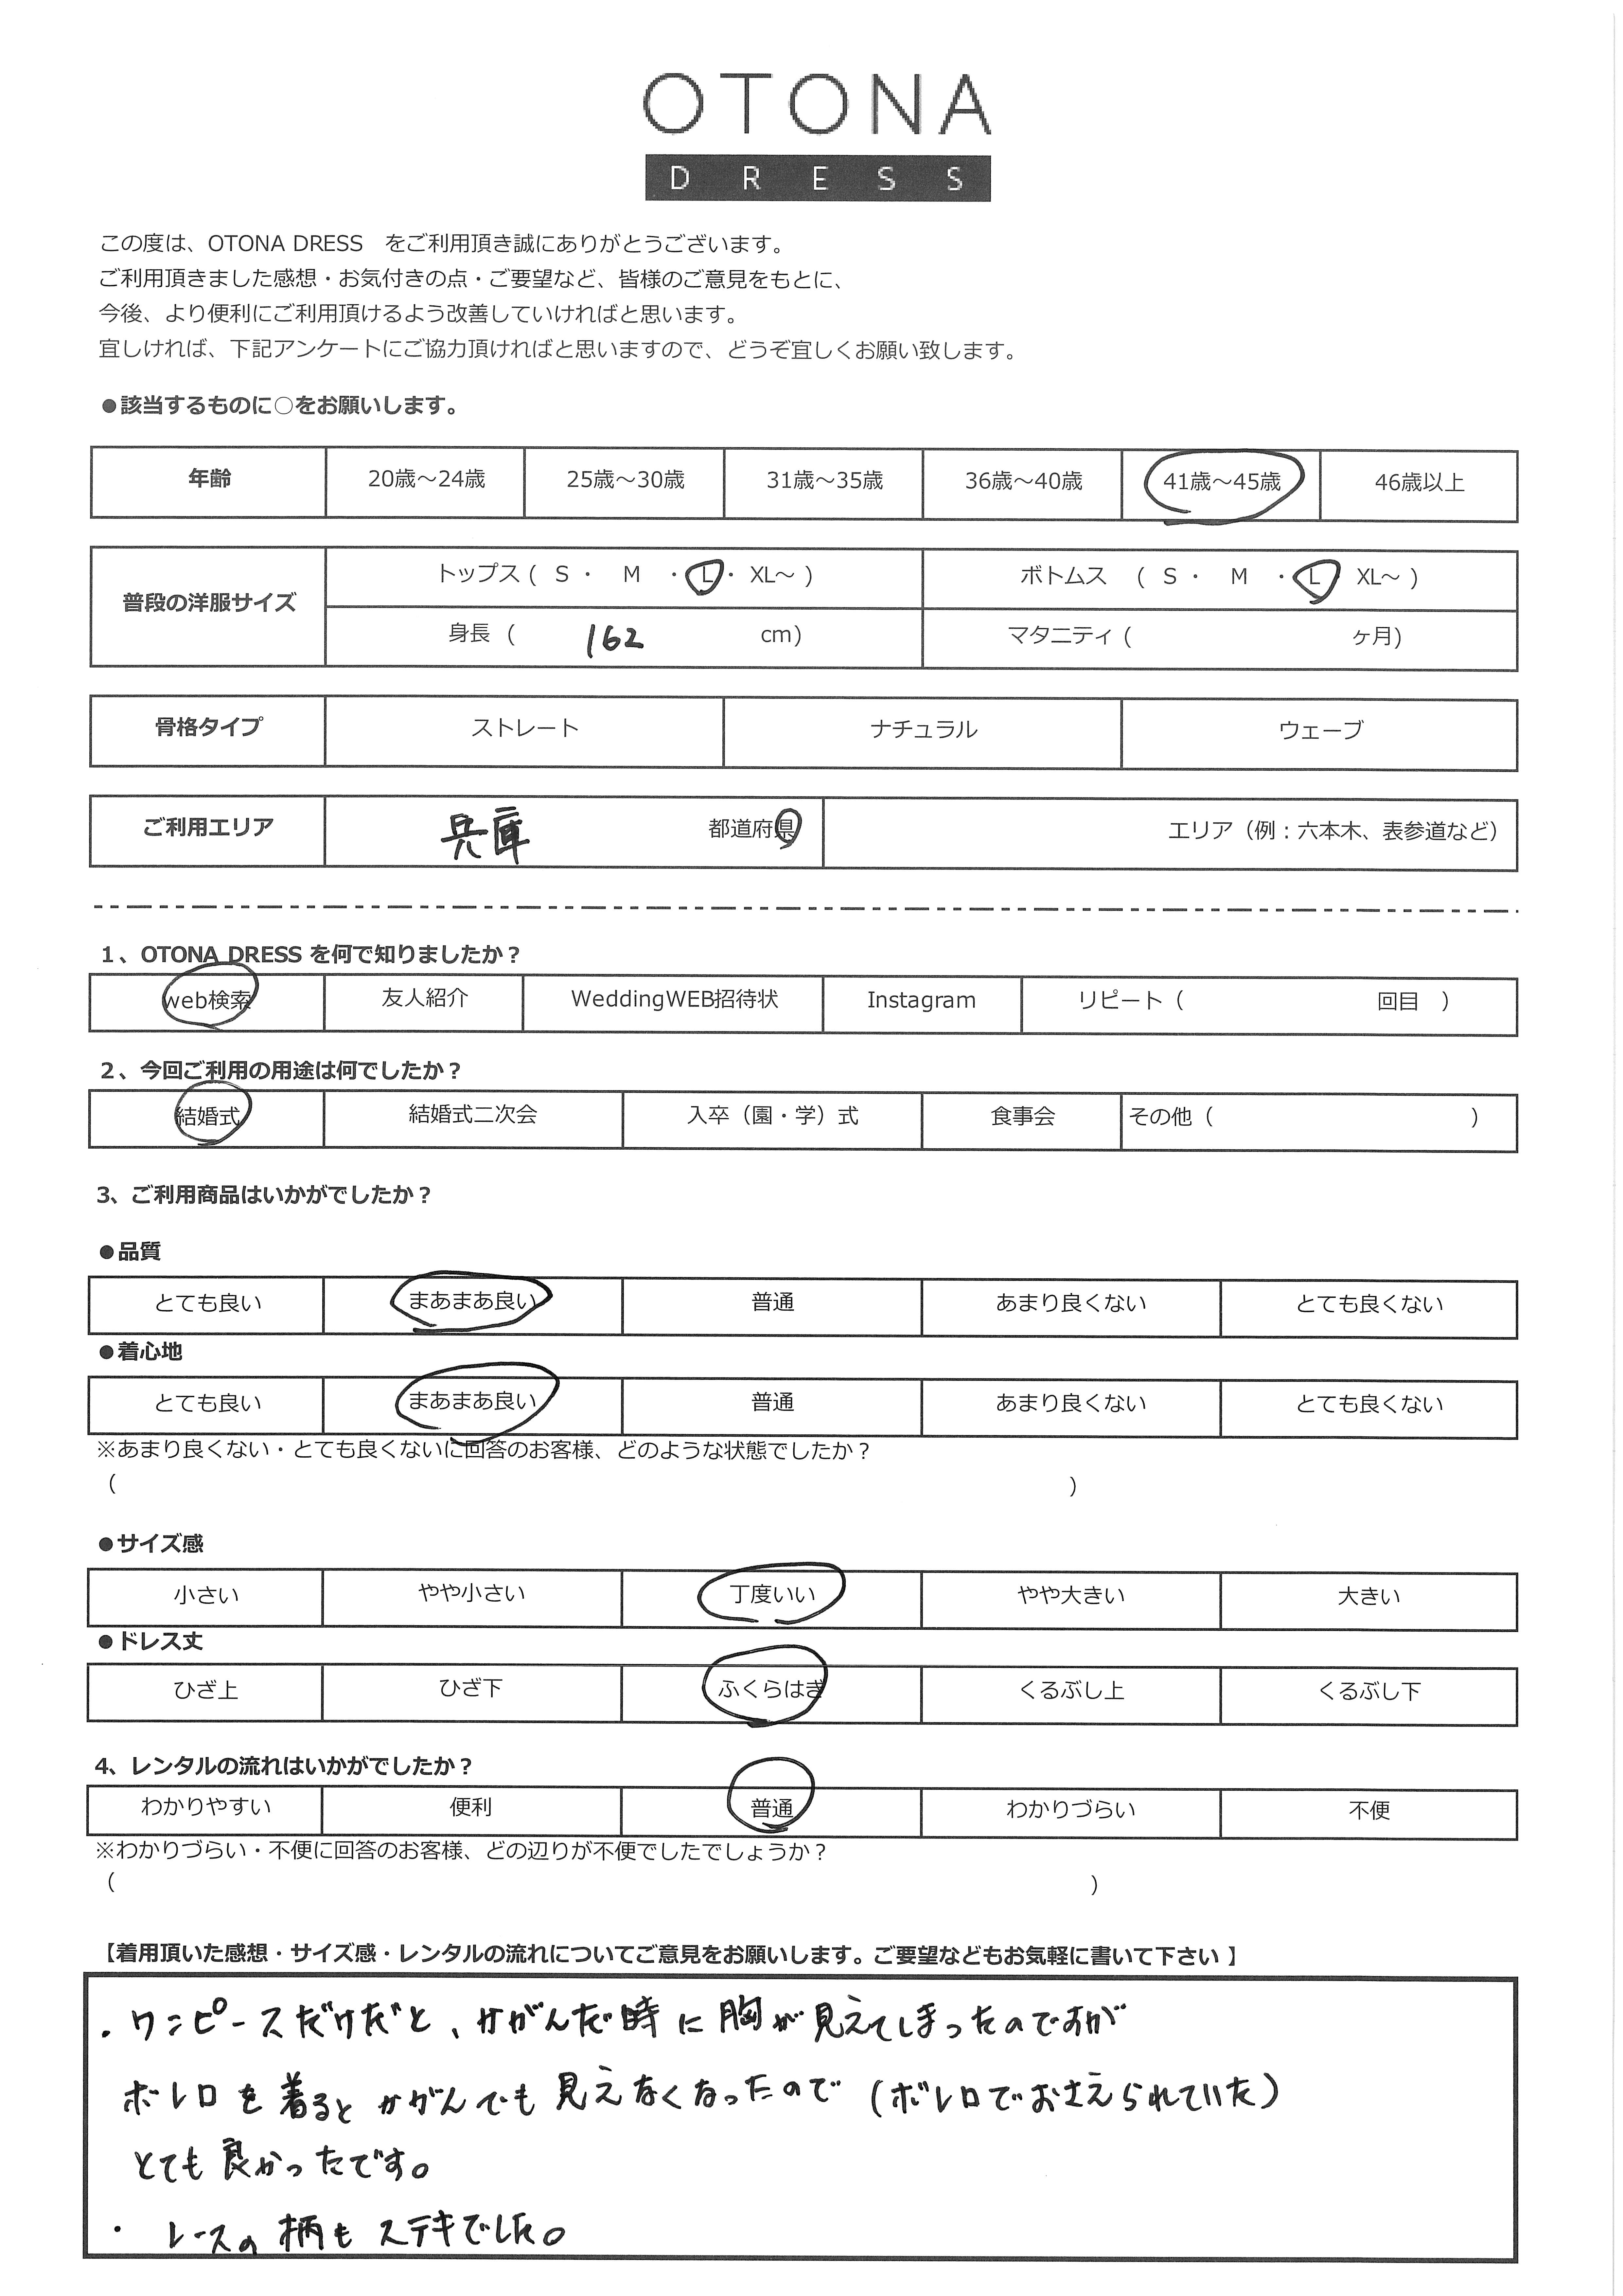 OTONA
DRESS
この度は、OTONA DRESS　をご利用頂き誠にありがとうございます。
ご利用頂きました感想・お気付きの点・ご要望など、皆様のご意見をもとに、
今後、より便利にご利用頂けるよう改善していければと思います。
宜しければ、下記アンケートにご協力頂ければと思いますので、どうぞ宜しくお願い致します。
●該当するものに○をお願いします。
年齢 20歳～24歳 25歳～30歳 31歳～35歳 36歳～40歳 41歳～45歳 46歳以上
普段の洋服サイズ トップス ( S ・ M ・ L ・ XL～ ) ボトムス ( S ・ M ・ L ・ XL～ )
身長 ( 162 cm) マタニティ ( ヶ月)
骨格タイプ ストレート ナチュラル ウェーブ
ご利用エリア 兵庫 都道府県 エリア（例：六本木、表参道など）
1、OTONA DRESS を何で知りましたか？
web検索 友人紹介 WeddingWEB招待状 Instagram リピート（ 回目 ）
2、今回ご利用の用途は何でしたか？
結婚式 結婚式二次会 入卒（園・学）式 食事会 その他（ ）
3、ご利用商品はいかがでしたか？
●品質
とても良い まあまあ良い 普通 あまり良くない とても良くない
●着心地
とても良い まあまあ良い 普通 あまり良くない とても良くない
※あまり良くない・とても良くないに回答のお客様、どのような状態でしたか？
（ ）
●サイズ感
小さい やや小さい 丁度いい やや大きい 大きい
●ドレス丈
ひざ上 ひざ下 ふくらはぎ くるぶし上 くるぶし下
4、レンタルの流れはいかがでしたか？
わかりやすい 便利 普通 わかりづらい 不便
※わかりづらい・不便に回答のお客様、どの辺りが不便でしたでしょうか？
（ ）
【着用頂いた感想・サイズ感・レンタルの流れについてご意見をお願いします。ご要望などもお気軽に書いて下さい 】
・ワンピースだけだと、かがんだ時に胸が見えてしまったのですが
ボレロを着るとかがんでも見えなくなったので（ボレロでおさえられていた）
とても良かったです。
・ レースの柄もステキでした。